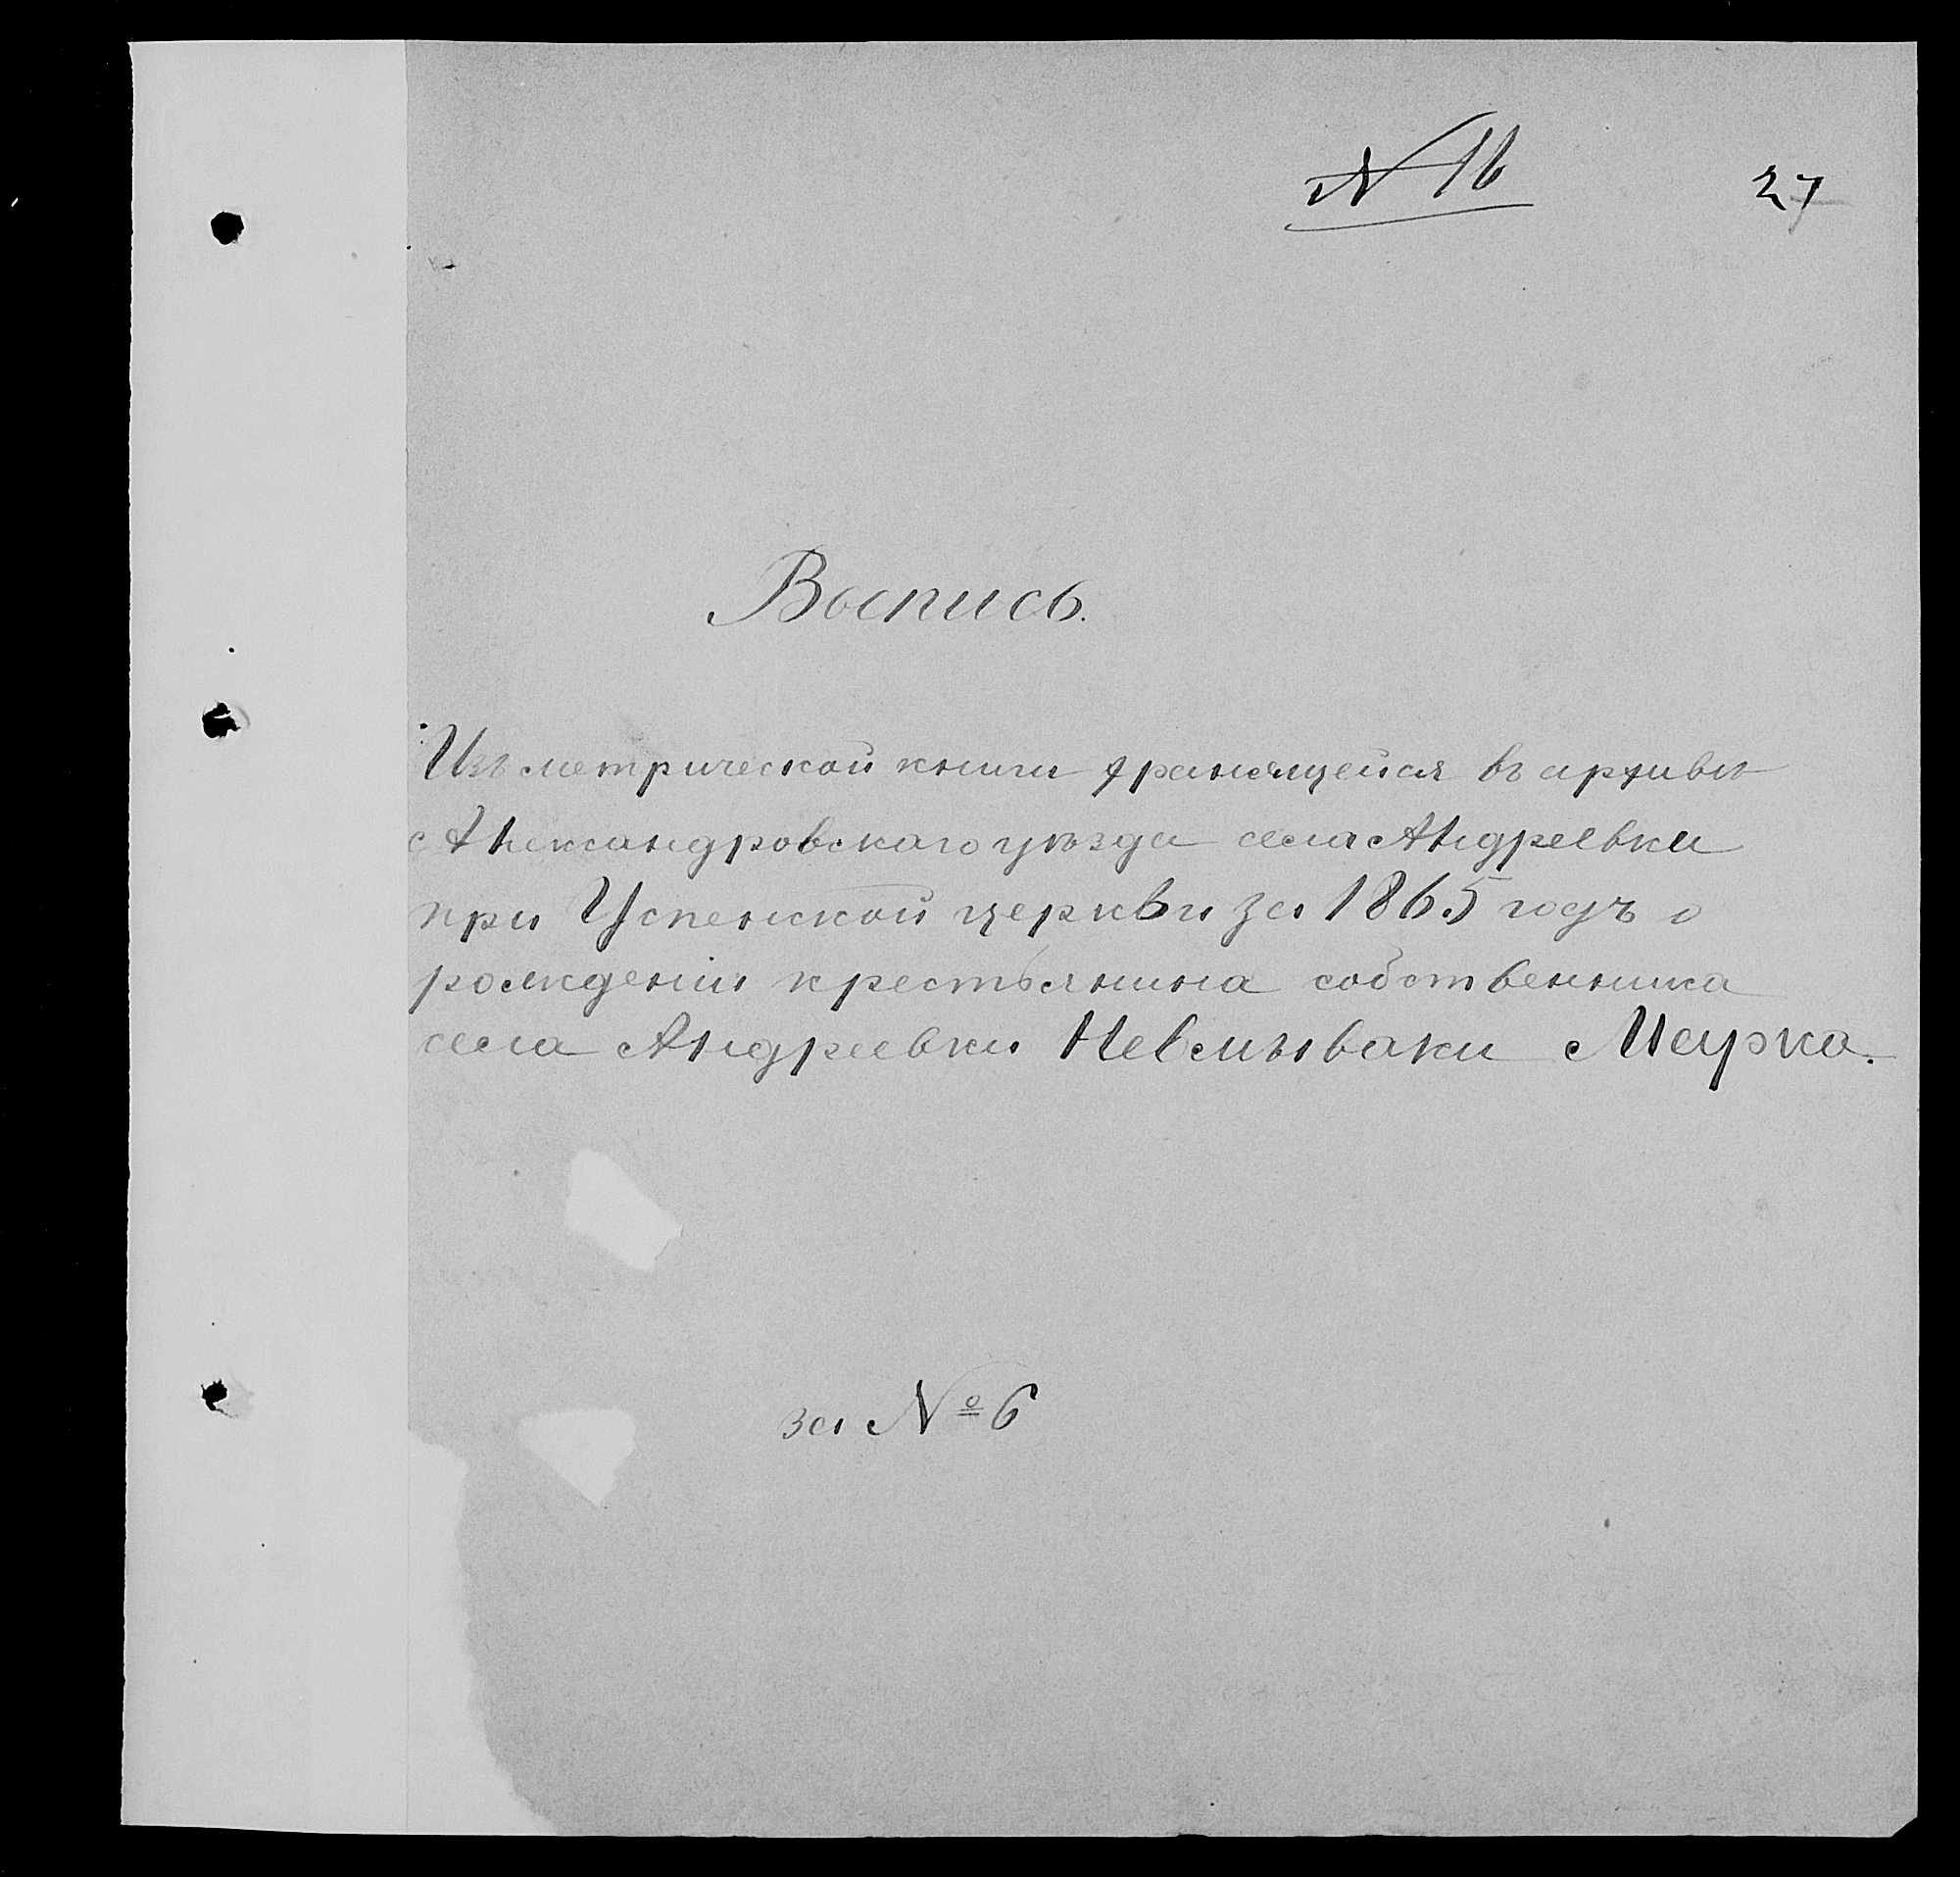 № 16
27
Выпись.
Изъ метрической книги хранящейся въ архивѣ
Александровскаго уѣзда села Андреевки
при Успенской церкви за 1865 годъ о
рожденіи крестьянина собственника
села Андреевки Невмываки Марка.
за № 6